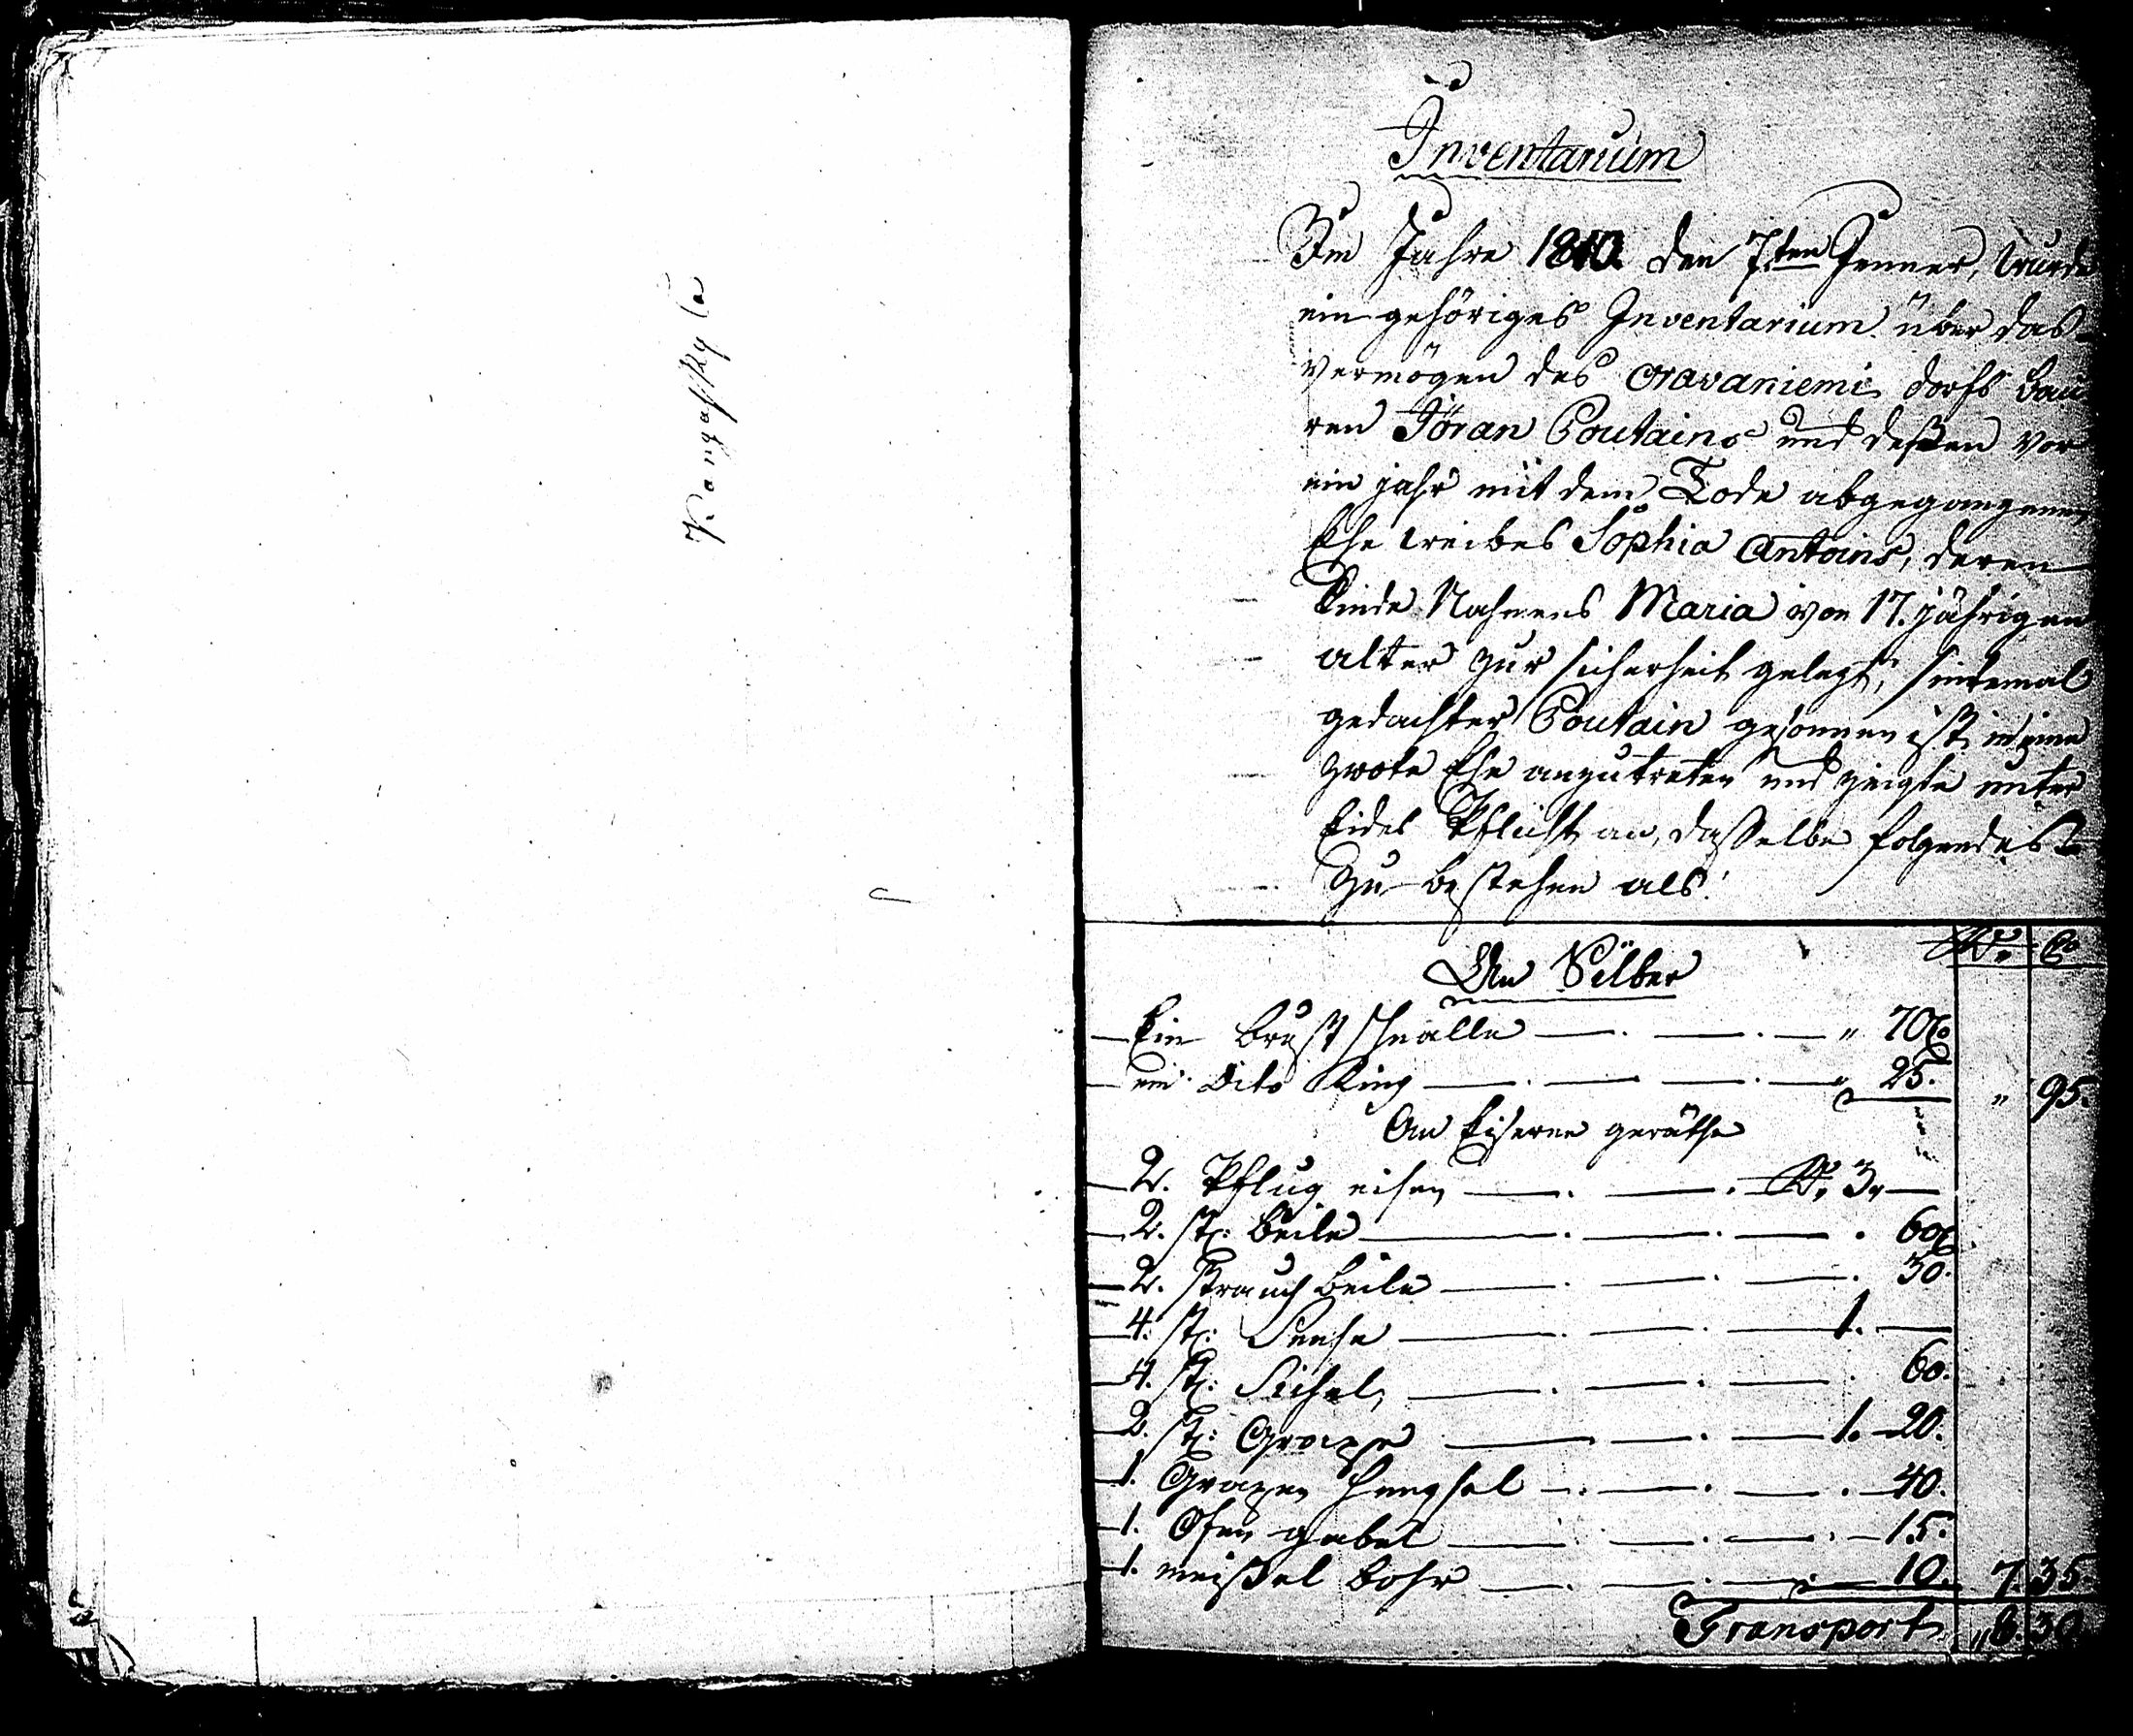 Kangaskylä
Inventarium
Im Jahre 1810. den 7ten Jenner, wurde
ein gehöriges Inventarium über das
vermögen des Oravaniemi dorfs bau
ren Jöran Poutains und deßen vor
ein jahr mit dem Tode abgegangenen
Ehe weibes Sophia Antoins, deren
Kinde Nahmens Maria von 17. jährigen
alter zur sicherheit gelegt, sintemal
gedachter Poutain gesonnen ist in eine
zwote Ehe anzutreten und zeigte unter
Eides Pflicht an, daßelbe folgendes
zu bestehen als:
R. C
An Silber
Ein brust schnalle — . — . — " 70 C
ein dito Ring — . — . — " 25. " 95.
An Eiserne geräthe
2. Pflug eisen — . — . R. 3. —
2. st: beile — . — . — . 60 C
2. strauch beile — . — . — . 30.
4. st: Sense — . — . — 1. —
4. st: Sichel — . — . — . 60.
2. st: Grape — . — . — 1. 20.
1. Grapen hengsel — . — . — . 40.
1. Ofen gabel — . — . — . 15.
1. meißel bohr — . — . — . 10. 7. 35.
Transport " 8. 30.